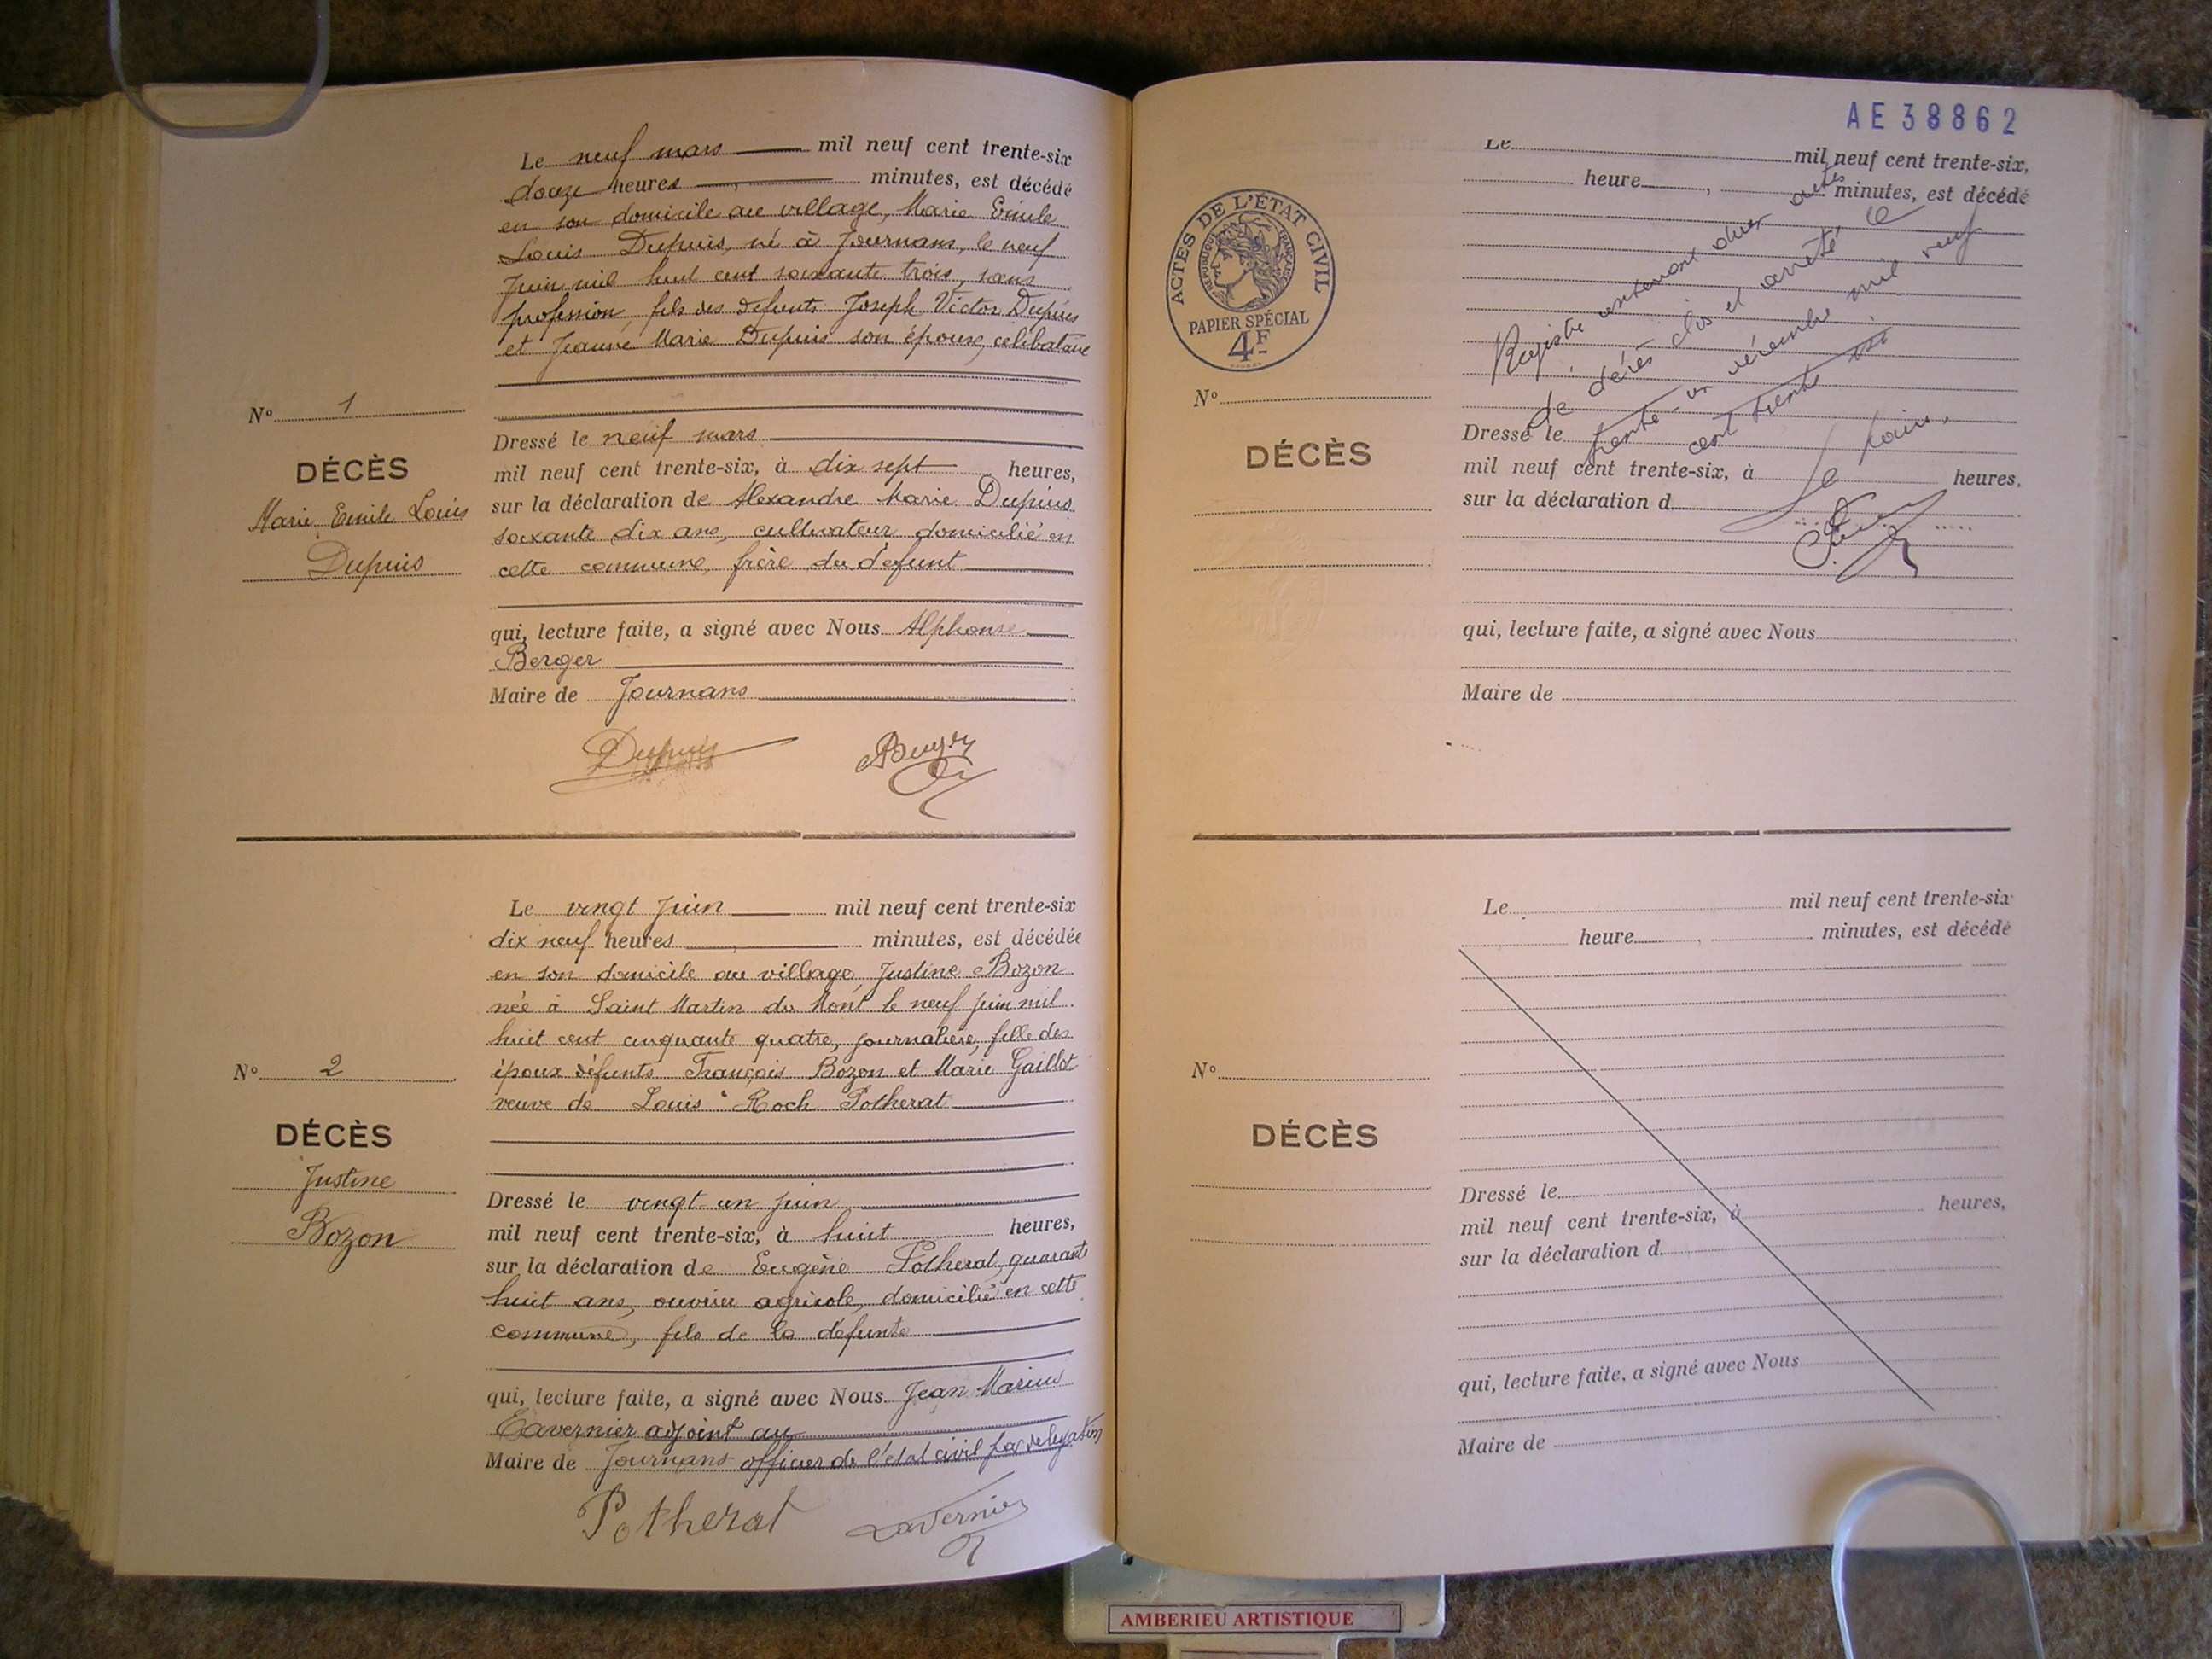 Le neuf mars mil neuf cent trente-six
douze heures , minutes, est décédé
en son domicile au village, Marie Emile
Louis Dupuis, né à Journans, le neuf
Juin mil huit cent soixante trois, sans
profession, fils des défunts Joseph Victor Dupuis
et Jeanne Marie Dupuis son épouse, célibataire
N° 1
DÉCÈS
Marie Emile Louis
Dupuis
Dressé le neuf mars
mil neuf cent trente-six, à dix sept heures,
sur la déclaration de Alexandre Marie Dupuis
soixante dix ans, cultivateur domicilié en
cette commune, frère du défunt
qui, lecture faite, a signé avec Nous Alphonse
Berger
Maire de Journans
Dupuis ABerger
Le vingt Juin mil neuf cent trente-six
dix neuf heures , minutes, est décédée
en son domicile au village, Justine Bozon
née à Saint Martin du Mont le neuf juin mil
huit cent cinquante quatre, journalière, fille des
époux défunts François Bozon et Marie Gaillot
veuve de Louis Roch Potherat
N° 2
DÉCÈS
Justine
Bozon
Dressé le vingt un juin
mil neuf cent trente-six, à huit heures,
sur la déclaration de Eugène Potherat, quarante
huit ans, ouvrier agricole, domicilié en cette
commune, fils de la défunte
qui, lecture faite, a signé avec Nous Jean Marius
Tavernier adjoint au
Maire de Journans officier de l'état civil par délégation
Potherat Tavernier
AE38862
Le mil neuf cent trente-six,
heure , minutes, est décédé
ACTES DE L'ÉTAT CIVIL
RÉPUBLIQUE FRANÇAISE
PAPIER SPÉCIAL
4F
Registre contenant deux actes
de décès clos et arrêté le
trente-un décembre mil neuf
cent trente six
Le Maire,
N°
DÉCÈS
Dressé le
mil neuf cent trente-six, à heures,
sur la déclaration d
qui, lecture faite, a signé avec Nous
Maire de
Le mil neuf cent trente-six
heure , minutes, est décédé
N°
DÉCÈS
Dressé le
mil neuf cent trente-six, à heures,
sur la déclaration d
qui, lecture faite, a signé avec Nous
Maire de
AMBERIEU ARTISTIQUE